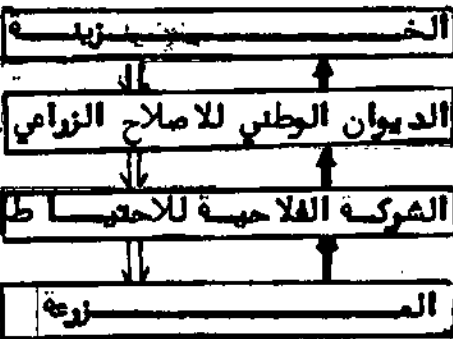 الخزينة
الديوان الوطني للاصلاح الزراعي
الشركة الفلاحية للاحتياط
المزرعة